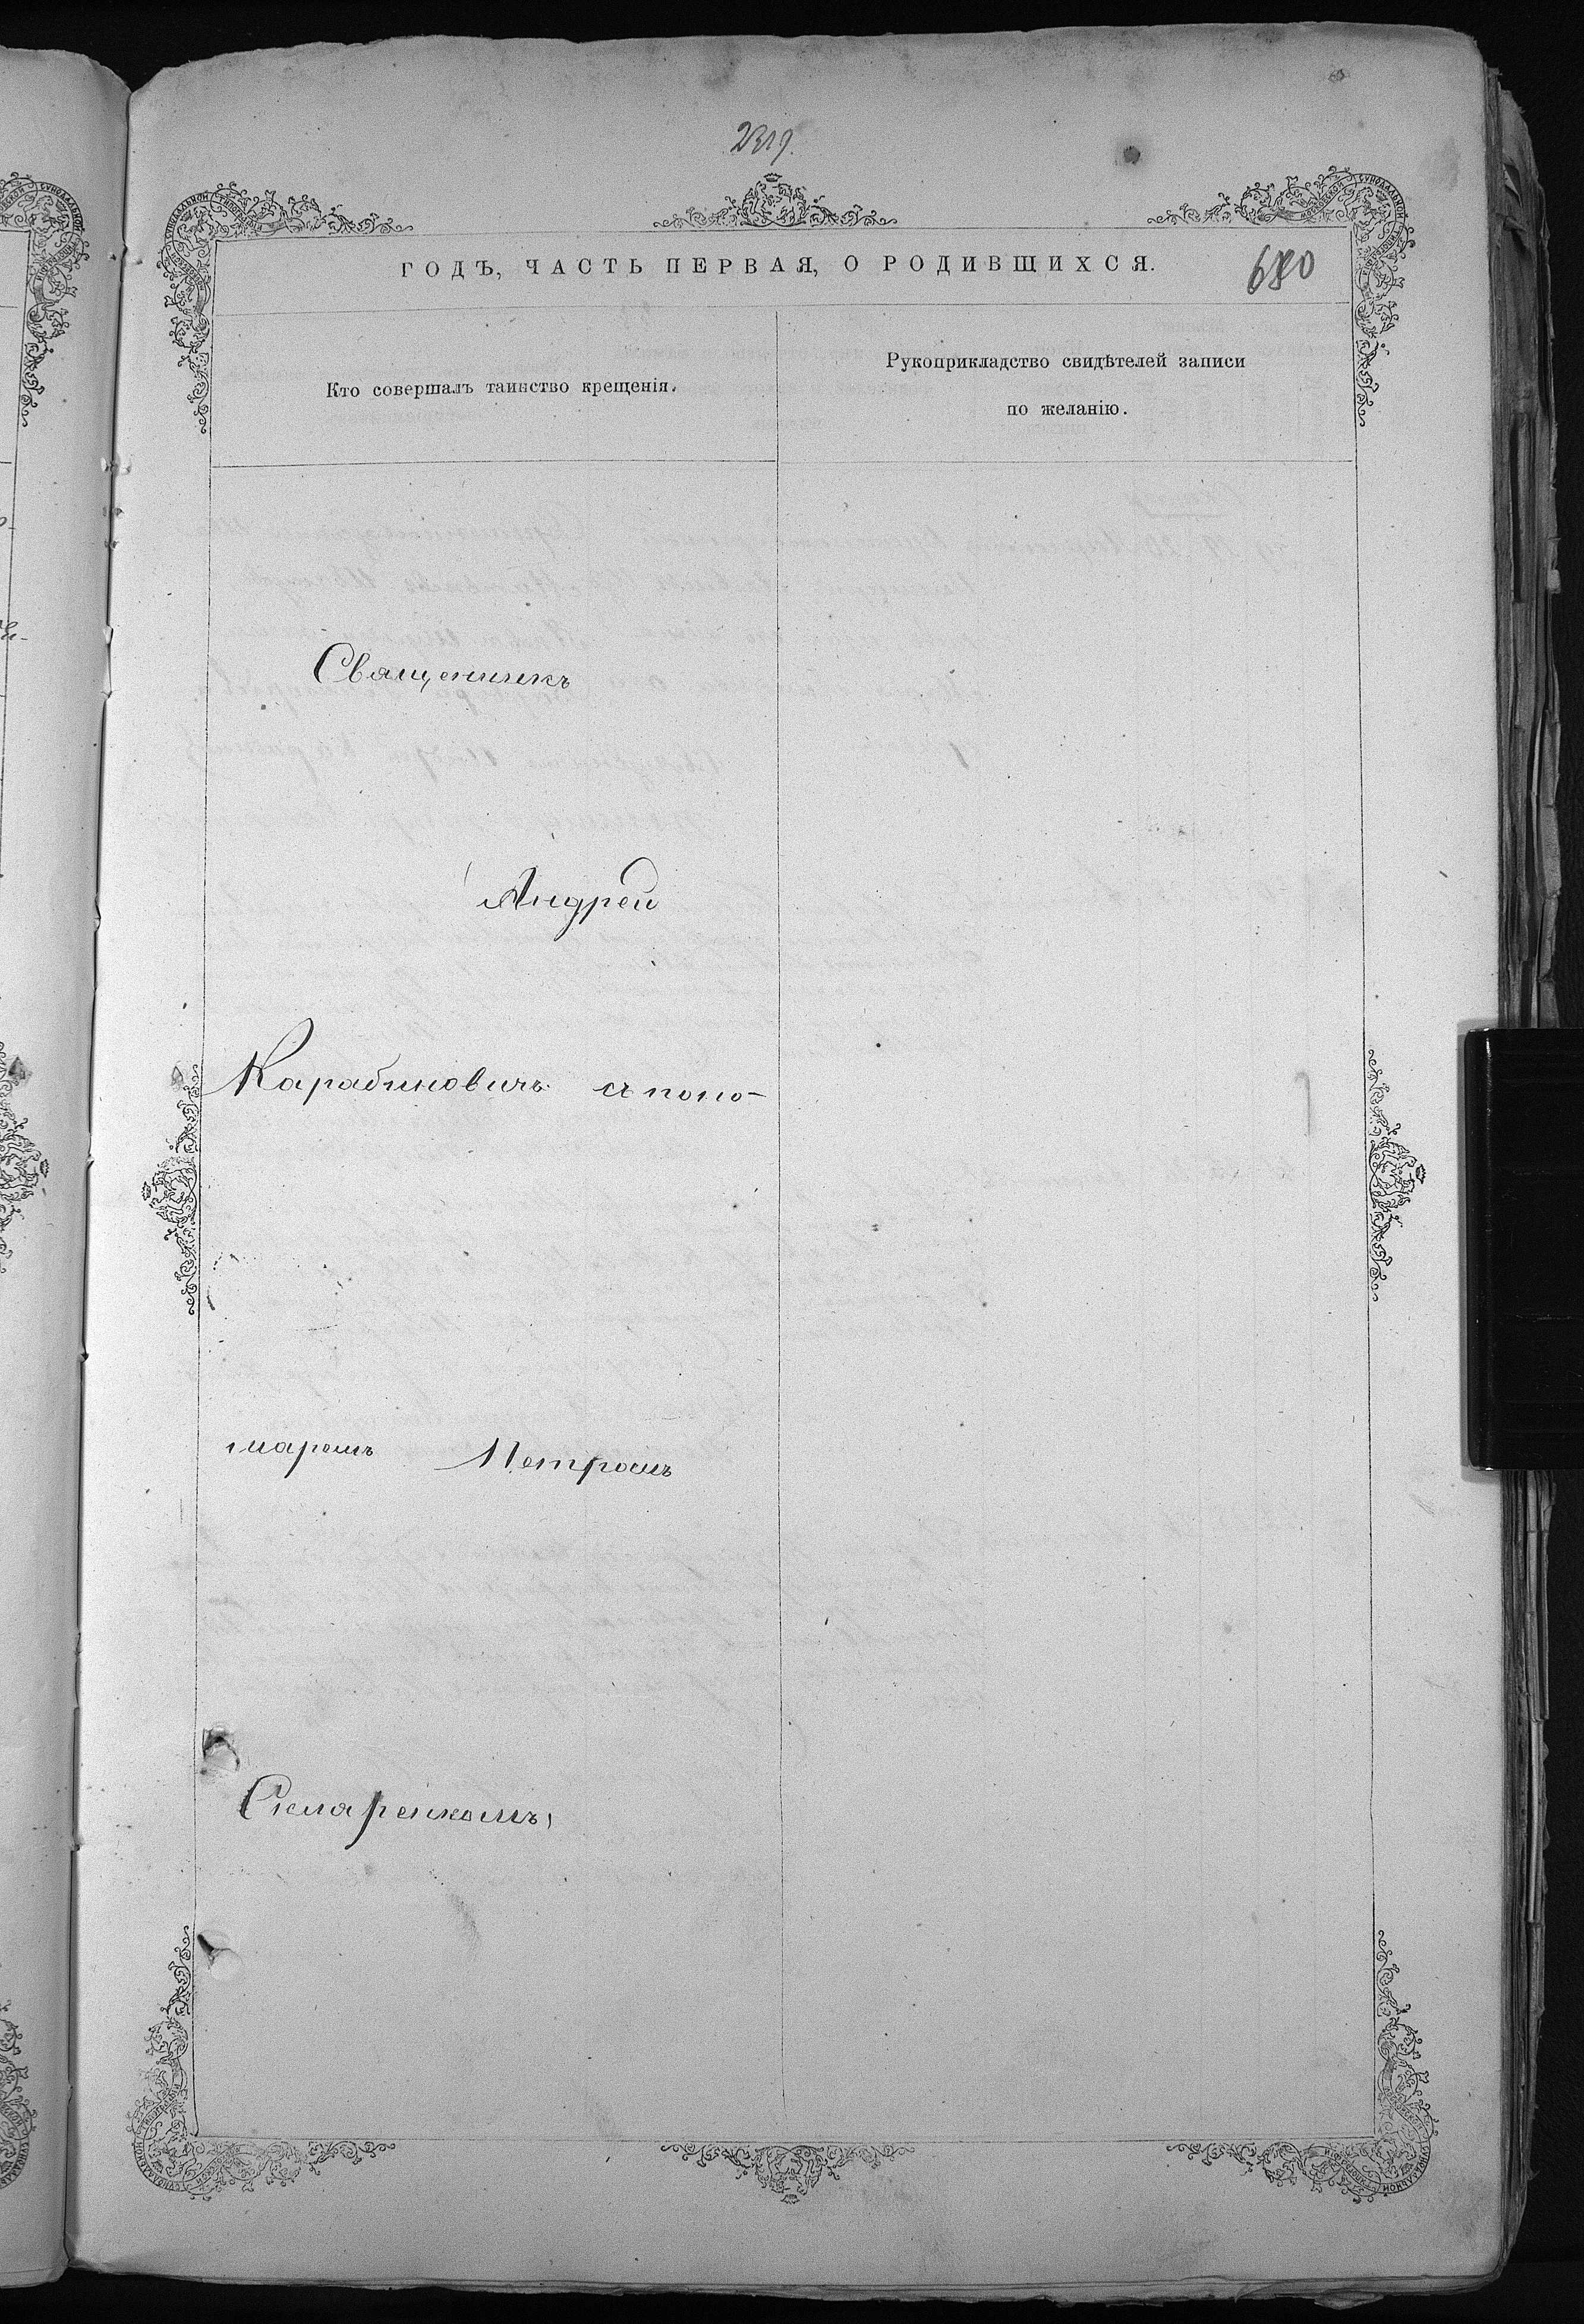 2319.
ГОДЪ, ЧАСТЬ ПЕРВАЯ, О РОДИВШИХСЯ.
680
Кто совершалъ таинство крещенія.
Рукоприкладство свидѣтелей записи
по желанію.
Священникъ
Андрей
Карабиновичъ съ поно-
маремъ Петромъ
Скларенкомъ,